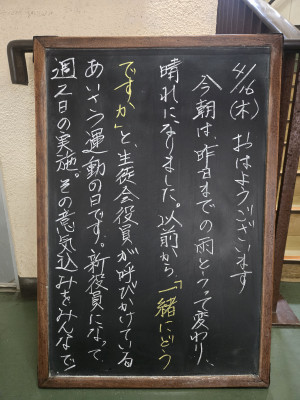 4/16(木) おはようございます
今朝は、昨日までの雨とうって変わり、
晴れになりました。以前から「一緒にどう
ですか」と、生徒会役員が呼びかけている
あいさつ運動の日です。新役員になって
週2日の実施。その意気込みをみんなで